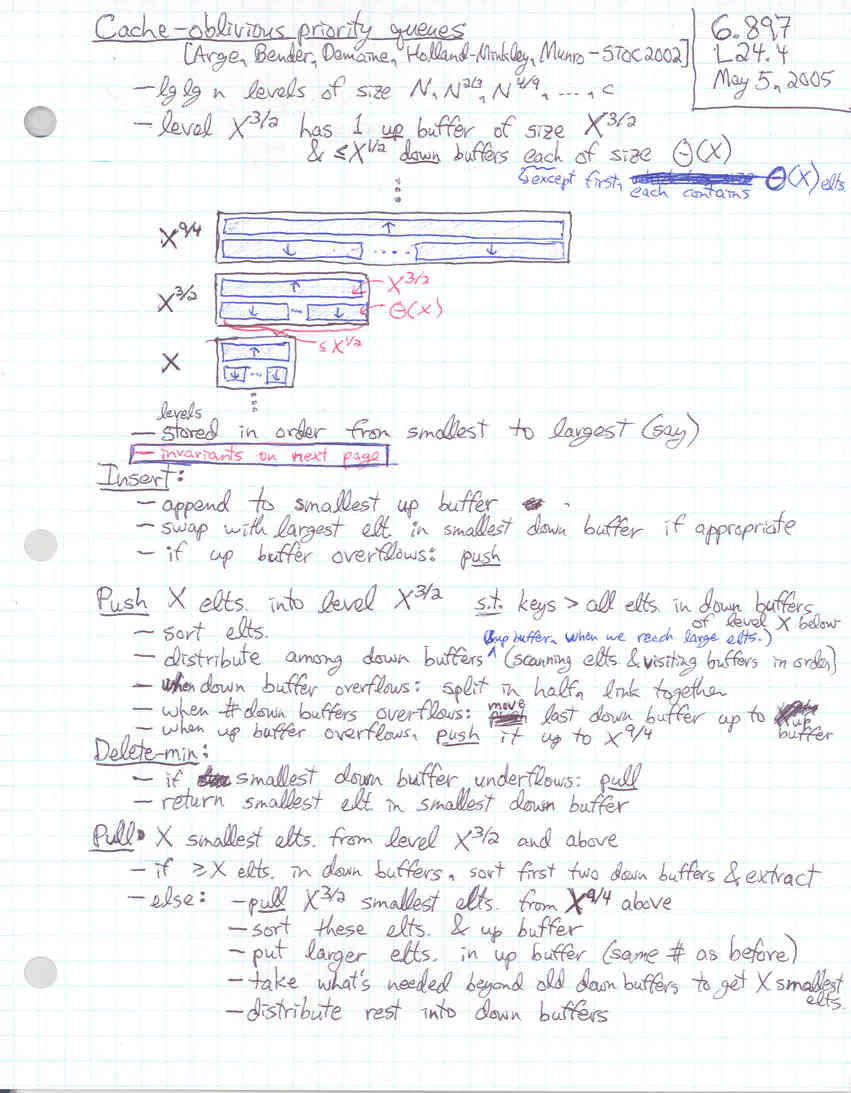 Cache-oblivious priority queues
[Arge, Bender, Demaine, Holland-Minkley, Munro - STOC 2002]
6.897
L24.4
May 5, 2005
- lg lg n levels of size N, N^2/3, N^4/9, ..., c
- level X^3/2 has 1 up buffer of size X^3/2
& ≤X^1/2 down buffers each of size Θ(X)
except first, each contains Θ(X) elts.
X^9/4
↑
↓ .... ↓
X^3/2
↑ X^3/2
↓ ... ↓ Θ(X)
≤X^1/2
X
↑
↓ ... ↓
levels
- stored in order from smallest to largest (say)
- invariants on next page
Insert:
- append to smallest up buffer
- swap with largest elt. in smallest down buffer if appropriate
- if up buffer overflows: push
Push X elts. into level X^3/2 s.t. keys > all elts. in down buffers
of level X below
- sort elts.
(up buffer, when we reach large elts.)
- distribute among down buffers ^ (scanning elts & visiting buffers in order)
- when down buffer overflows: split in half, link together
- when # down buffers overflows: move last down buffer up to up buffer
- when up buffer overflows, push it up to X^9/4
Delete-min:
- if smallest down buffer underflows: pull
- return smallest elt. in smallest down buffer
Pull: X smallest elts. from level X^3/2 and above
- if ≥X elts. in down buffers, sort first two down buffers & extract
- else: - pull X^3/2 smallest elts. from X^9/4 above
- sort these elts. & up buffer
- put larger elts. in up buffer (same # as before)
- take what's needed beyond old down buffers to get X smallest elts.
- distribute rest into down buffers